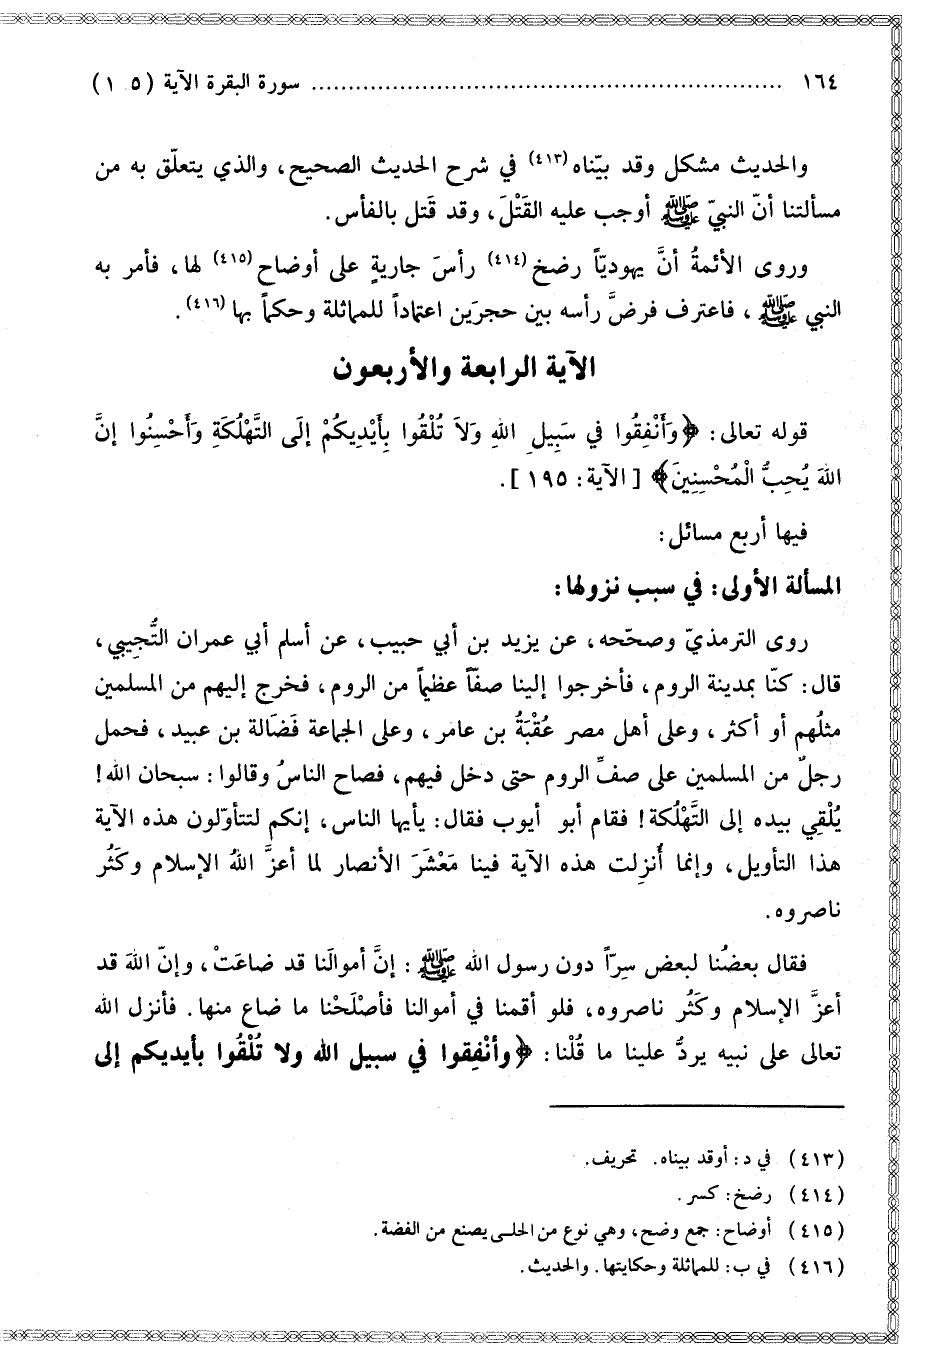 ١٦٤ ................................................................ سورة البقرة الآية (٥ ١)
والحديث مشكل وقد بيّناه(٤١٣) في شرح الحديث الصحيح، والذي يتعلّق به من
مسألتنا أنّ النبيّ ﷺ أوجب عليه القَتْلَ، وقد قَتل بالفأس.
وروى الأئمةُ أنَّ يهوديّاً رضخ(٤١٤) رأسَ جاريةٍ على أوضاح(٤١٥) لها، فأمر به
النبي ﷺ، فاعترف فرضَّ رأسه بين حجرَين اعتماداً للمماثلة وحكماً بها(٤١٦).
الآية الرابعة والأربعون
قوله تعالى: ﴿وَأَنْفِقُوا في سَبِيلِ اللهِ وَلاَ تُلْقُوا بِأَيْدِيكُمْ إلَى التَّهْلُكَةِ وَأَحْسِنُوا إنَّ
اللهَ يُحِبُّ الْمُحْسِنِينَ﴾ [الآية: ١٩٥].
فيها أربع مسائل:
المسألة الأولى: في سبب نزولها:
روى الترمذيّ وصحّحه، عن يزيد بن أبي حبيب، عن أسلم أبي عمران التُّجِيبي،
قال: كنّا بمدينة الروم، فأخرجوا إلينا صفّاً عظيماً من الروم، فخرج إليهم من المسلمين
مثلُهم أو أكثر، وعلى أهل مصر عُقْبَةُ بن عامر، وعلى الجماعة فَضَالة بن عبيد، فحمل
رجلٌ من المسلمين على صفِّ الروم حتى دخل فيهم، فصاح الناسُ وقالوا: سبحان الله!
يُلْقِي بيده إلى التَّهْلُكة! فقام أبو أيوب فقال: يأيها الناس، إنكم لتتأوّلون هذه الآية
هذا التأويل، وإنما أُنزِلت هذه الآية فينا مَعْشَرَ الأنصار لما أعزَّ اللهُ الإسلام وكَثُر
ناصروه.
فقال بعضُنا لبعض سِرّاً دون رسول الله ﷺ: إنَّ أموالَنا قد ضاعَتْ، وإنّ اللهَ قد
أعزَّ الإسلام وكَثُر ناصروه، فلو أقمنا في أموالنا فأصْلَحْنا ما ضاع منها. فأنزل الله
تعالى على نبيه يردُّ علينا ما قُلْنا: ﴿وأنْفِقوا في سبيل الله ولا تُلْقُوا بأيديكم إلى
(٤١٣) في د: أوقد بيناه. تحريف.
(٤١٤) رضخ: كسر.
(٤١٥) أوضاح: جمع وضح، وهي نوع من الحلـى يصنع من الفضة.
(٤١٦) في ب: للمماثلة وحكايتها. والحديث.